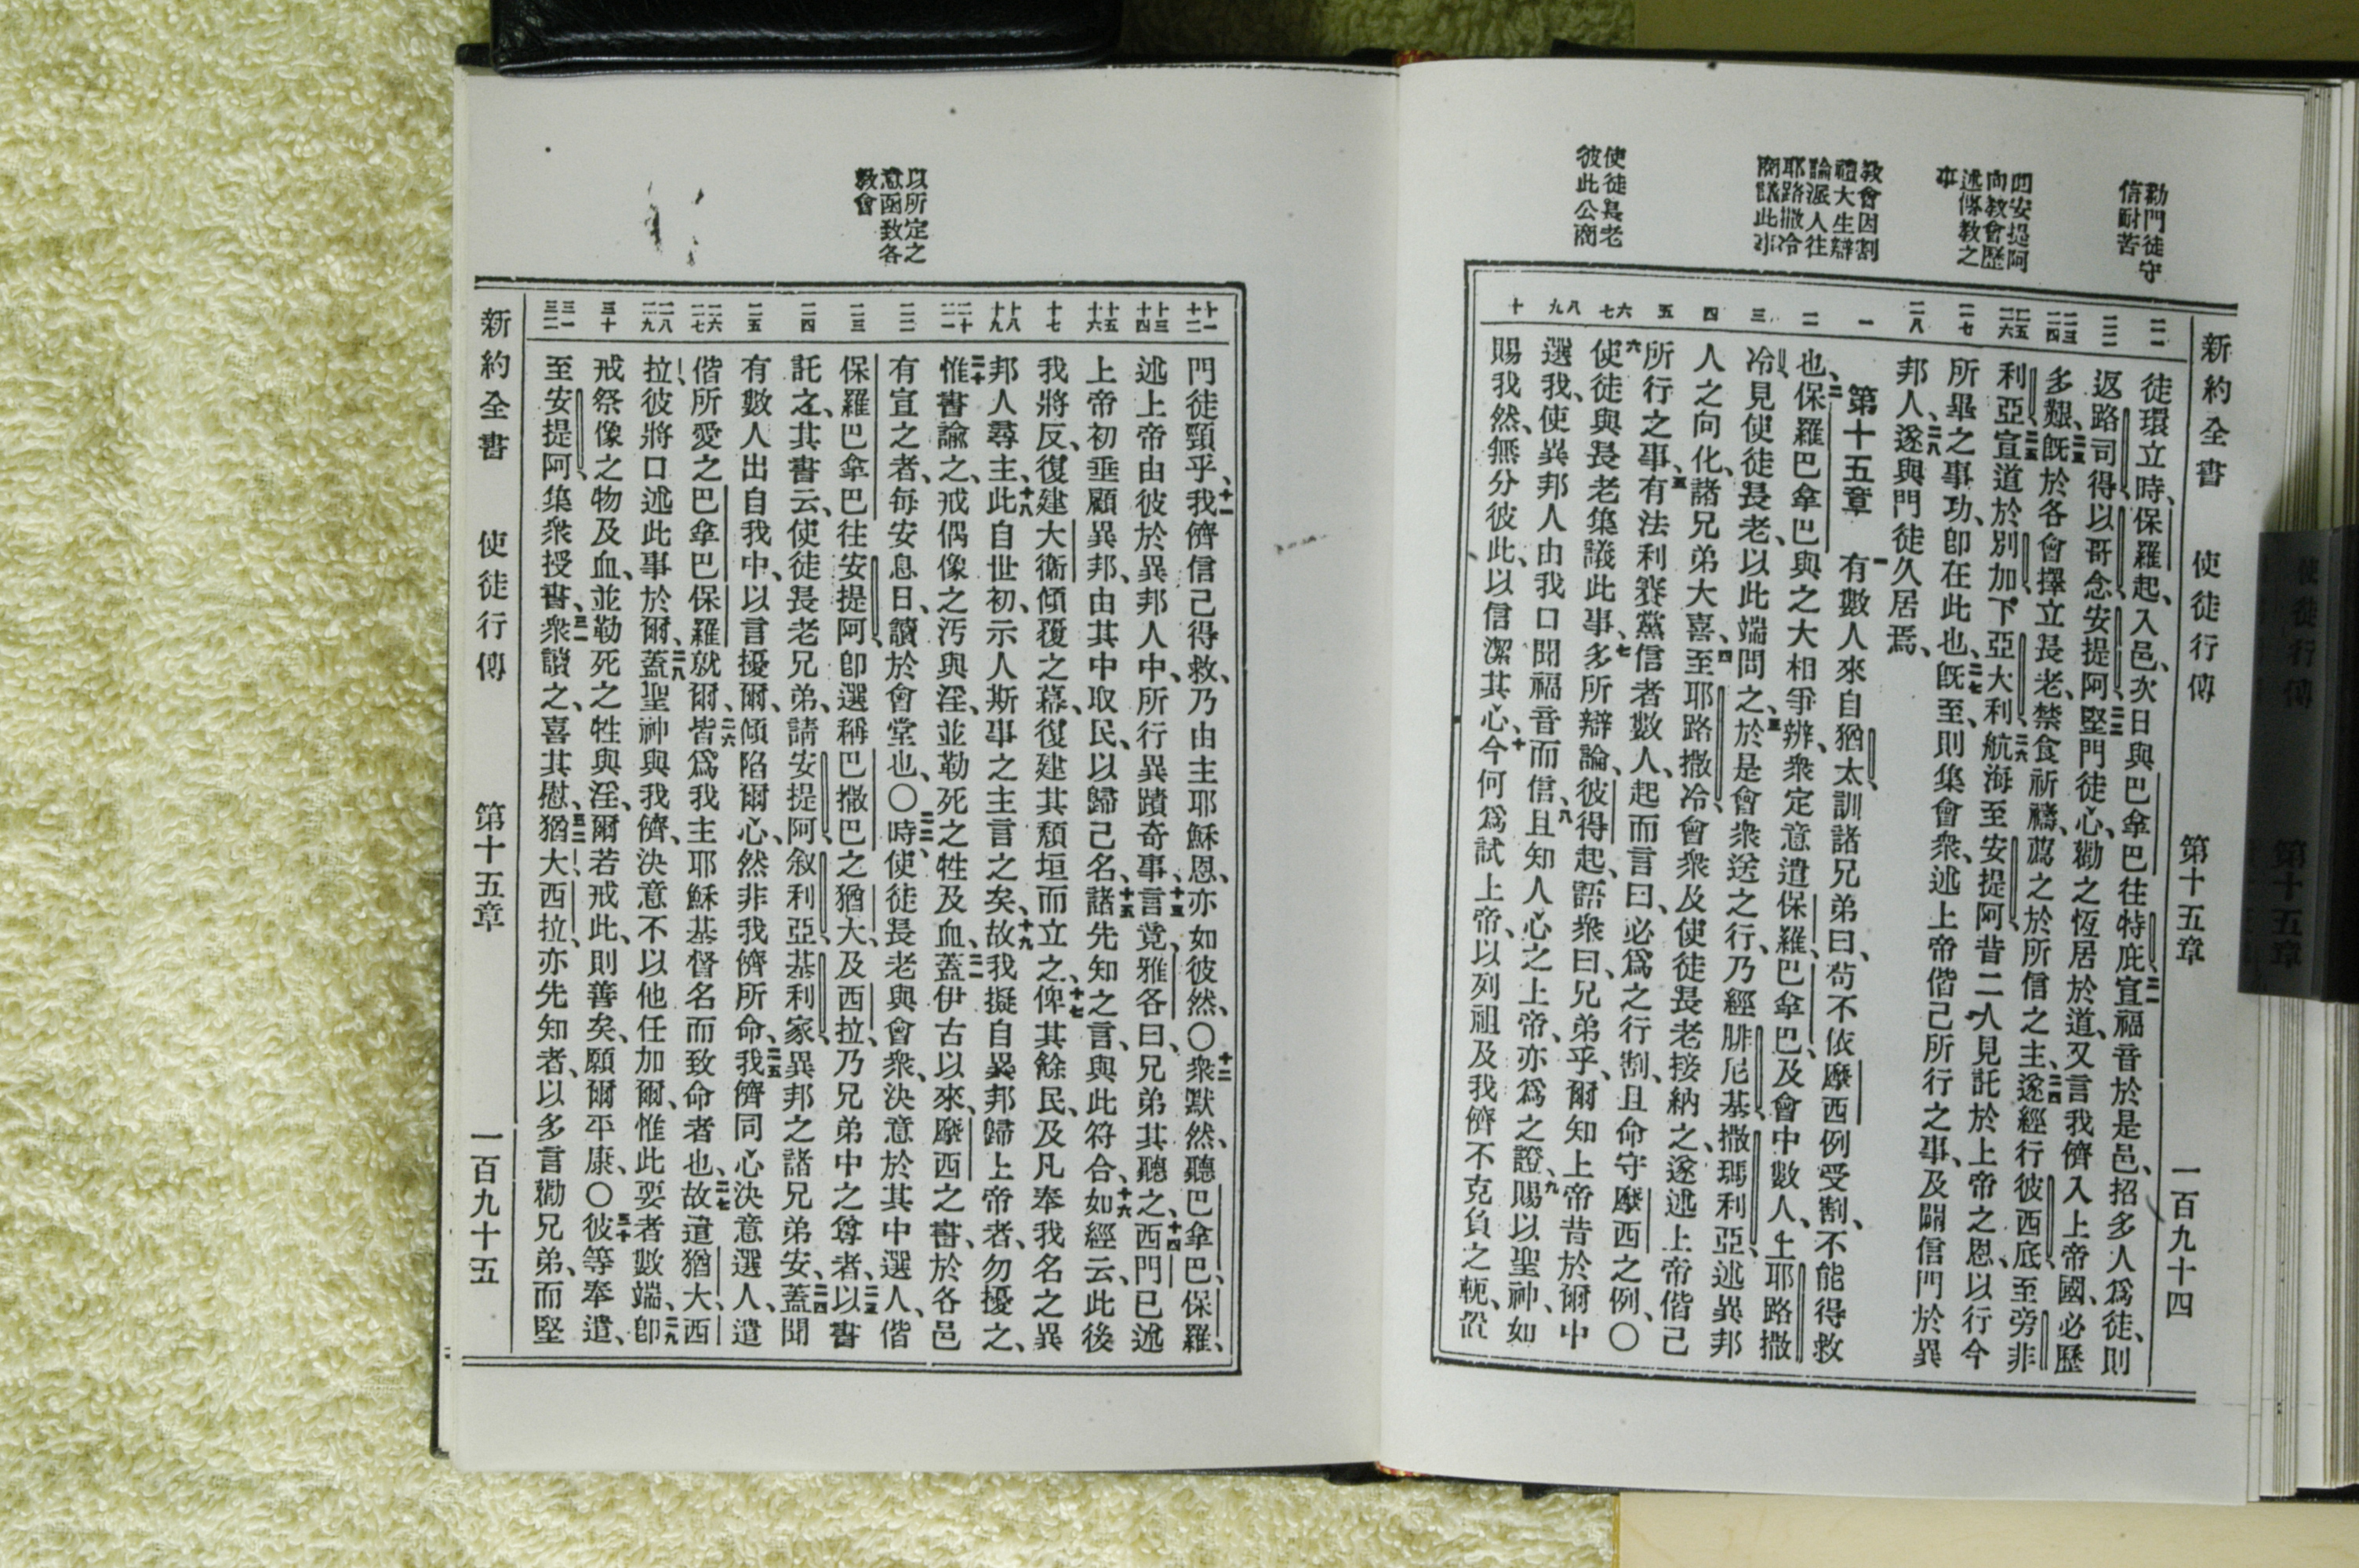 勸門徒守
信耐苦
回安提阿
向教會歷
述傳教之
事
教會因割
禮大生辯
論派人往
耶路撒冷
商議此事
使徒長老
彼此公商
新約全書 使徒行傳 第十五章 一百九十四
二一
二二
二三 二四
二五 二六
二七
二八
一
二
三
四
五
六 七
八 九
十
徒環立時、保羅起、入邑、次日與巴拿巴往特庇、二一宣福音於是邑、招多人爲徒、則
返路司得、以哥念、安提阿、二二堅門徒心、勸之恆居於道、又言我儕入上帝國、必歷
多艱、二三旣於各會擇立長老、禁食祈禱、薦之於所信之主、二四遂經行彼西底、至旁非
利亞、二五宣道於別加、下亞大利、二六航海至安提阿、昔二人見託於上帝之恩、以行今
所畢之事功、卽在此也、二七旣至、則集會衆、述上帝偕己所行之事、及闢信門於異
邦人、二八遂與門徒久居焉、
第十五章 一有數人來自猶太、訓諸兄弟曰、苟不依摩西例受割、不能得救
也、二保羅巴拿巴與之大相爭辨、衆定意遣保羅、巴拿巴、及會中數人、上耶路撒
冷、見使徒長老、以此端問之、三於是會衆送之行、乃經腓尼基、撒瑪利亞、述異邦
人之向化、諸兄弟大喜、四至耶路撒冷、會衆及使徒長老接納之、遂述上帝偕己
所行之事、五有法利賽黨信者數人、起而言曰、必爲之行割、且命守摩西之例、〇
六使徒與長老集議此事、七多所辯論、彼得起、語衆曰、兄弟乎、爾知上帝昔於爾中
選我、使異邦人由我口聞福音而信、八且知人心之上帝、亦爲之證、九賜以聖神、如
賜我然、無分彼此、以信潔其心、十今何爲試上帝、以列祖及我儕不克負之軛、置
以所定之
意函致各
教會
十一 十二
十三 十四
十五 十六
十七
十八 十九
二十 二一
二二
二三
二四
二五
二六 二七
二八 二九
三十
三一 三二
門徒頸乎、十一我儕信己得救、乃由主耶穌恩、亦如彼然、〇十二衆默然、聽巴拿巴、保羅、
述上帝由彼於異邦人中、所行異蹟奇事、十三言竟、雅各曰、兄弟其聽之、十四西門已述
上帝初垂顧異邦、由其中取民、以歸己名、十五諸先知之言、與此符合、十六如經云、此後
我將反、復建大衞傾覆之幕、復建其頹垣而立之、十七俾其餘民、及凡奉我名之異
邦人尋主、十八此自世初、示人斯事之主言之矣、十九故我擬自異邦歸上帝者、勿擾之、
二十惟書諭之、戒偶像之汚與淫、並勒死之牲及血、二一蓋伊古以來、摩西之書、於各邑
有宣之者、每安息日、讀於會堂也、〇二二時、使徒長老與會衆、決意於其中選人、偕
保羅巴拿巴往安提阿、卽選稱巴撒巴之猶大、及西拉、乃兄弟中之尊者、二三以書
託之、其書云、使徒長老兄弟、請安提阿、叙利亞、基利家、異邦之諸兄弟安、二四蓋聞
有數人出自我中、以言擾爾、傾陷爾心、然非我儕所命、二五我儕同心決意選人、遣
偕所愛之巴拿巴保羅就爾、二六皆爲我主耶穌基督名而致命者也、二七故遣猶大、西
拉、彼將口述此事於爾、二八蓋聖神與我儕、決意不以他任加爾、惟此要者數端、二九卽
戒祭像之物及血、並勒死之牲與淫、爾若戒此、則善矣、願爾平康、〇三十彼等奉遣、
至安提阿、集衆授書、三一衆讀之、喜其慰、三二猶大、西拉、亦先知者、以多言勸兄弟、而堅
新約全書 使徒行傳 第十五章 一百九十五